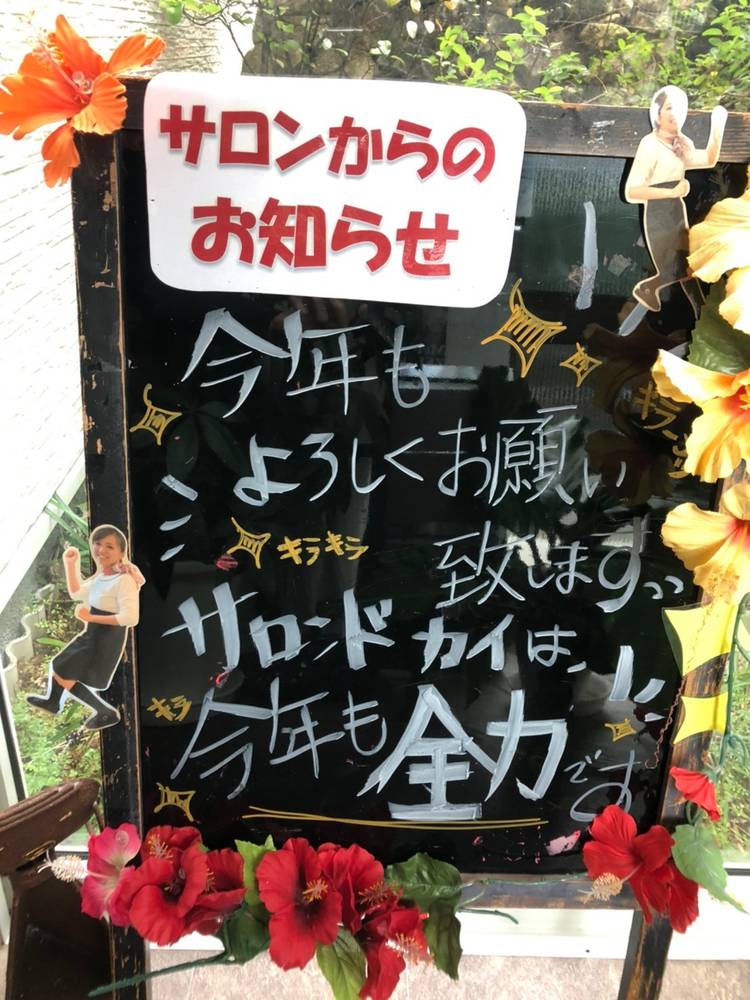 サロンからの
お知らせ
今年も
よろしくお願い
キラキラ
致します
サロンド カイは、
キラ
今年も全力です